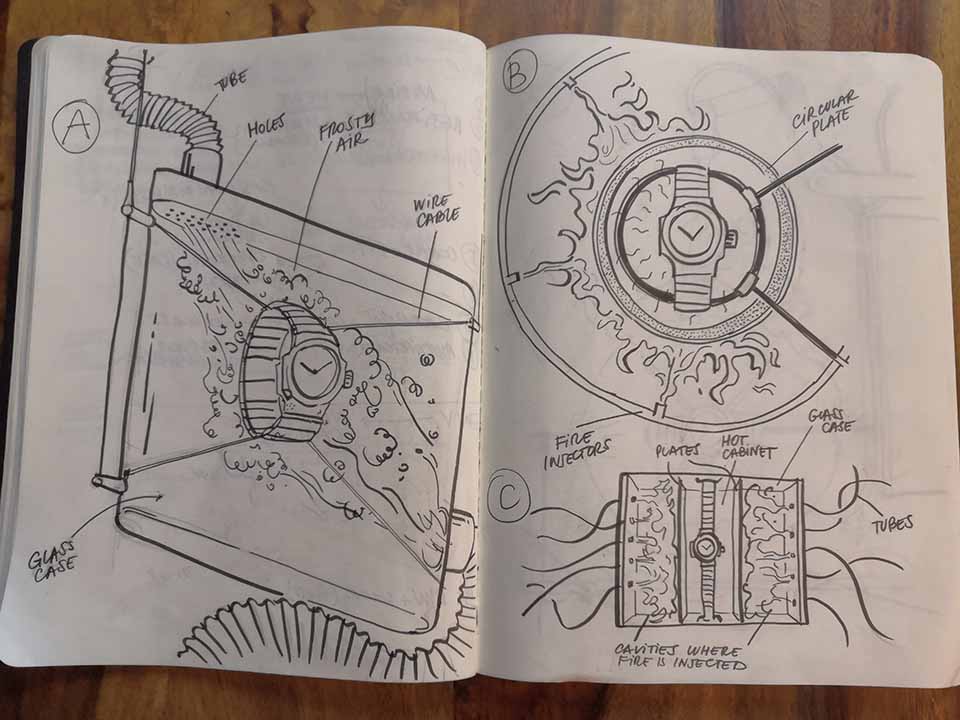 A
TUBE
HOLES
FROSTY
AIR
WIRE
CABLE
GLASS
CASE
B
CIRCULAR
PLATE
FIRE
INJECTORS
C
PLATES
HOT
CABINET
GLASS
CASE
TUBES
CAVITIES WHERE
FIRE IS INJECTED